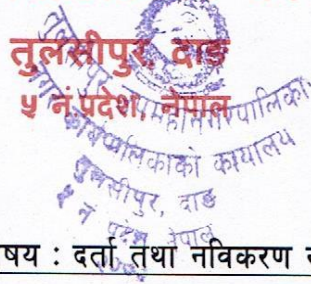 तुलसीपुर, दाङ
५ नं.प्रदेश, नेपाल
तुलसीपुर उपमहानगरपालिका
नगर कार्यपालिकाको कार्यालय
तुलसीपुर, दाङ
५ नं प्रदेश नेपाल
षय : दर्ता तथा नविकरण